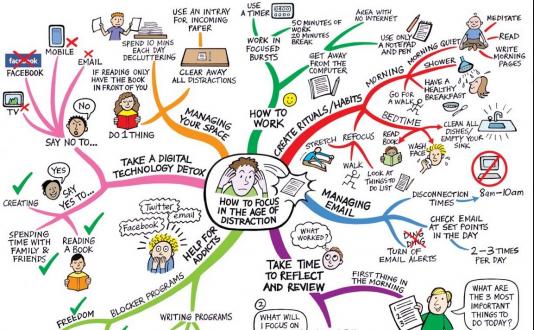 USE AN INTRAY FOR INCOMING
PAPER
SPEND 10 MINS
EACH DAY
DECLUTTERING
CLEAR AWAY
ALL DISTRACTIONS
IF READING ONLY
HAVE THE BOOK
IN FRONT OF YOU
DO 1 THING
MANAGING
YOUR SPACE
USE
A TIMER
50 MINUTES OF
WORK
10 MINUTES
BREAK
WORK IN
FOCUSED
BURSTS
AREA WITH
NO INTERNET
GET AWAY
FROM THE
COMPUTER
USE ONLY
A NOTEPAD
AND PEN
HOW TO
WORK
CREATE RITUALS/HABITS
MORNING
MORNING QUIET
MEDITATE
READ
WRITE
MORNING
PAGES
SHOWER
HAVE A
HEALTHY
BREAKFAST
GO FOR
A WALK
BEDTIME
CLEAN ALL
DISHES/
EMPTY YOUR
SINK
READ
BOOK
WASH
FACE
LOOK AT
THINGS TO
DO LIST
REFOCUS
STRETCH
WALK
facebook
FACEBOOK
MOBILE
EMAIL
TV
NO
SAY NO TO...
TAKE A DIGITAL
TECHNOLOGY DETOX
YES
SAY
YES TO...
CREATING
SPENDING
TIME WITH
FAMILY &
FRIENDS
READING
A BOOK
HOW TO FOCUS
IN THE AGE OF
DISTRACTION
MANAGING
EMAIL
DISCONNECTION
TIMES
8am-10am
CHECK EMAIL
AT SET POINTS
IN THE DAY
2-3 TIMES
PER DAY
DING
DING
TURN OF
EMAIL ALERTS
Twitter
email
Facebook
HELP FOR
ADDICTS
BLOCKER PROGRAMS
FREEDOM
WRITING PROGRAMS
WHAT
WORKED?
TAKE TIME
TO REFLECT
AND REVIEW
FIRST THING
IN THE MORNING
WHAT ARE
THE 3 MOST
IMPORTANT
THINGS TO
DO TODAY?
2
WHAT WILL
I FOCUS ON